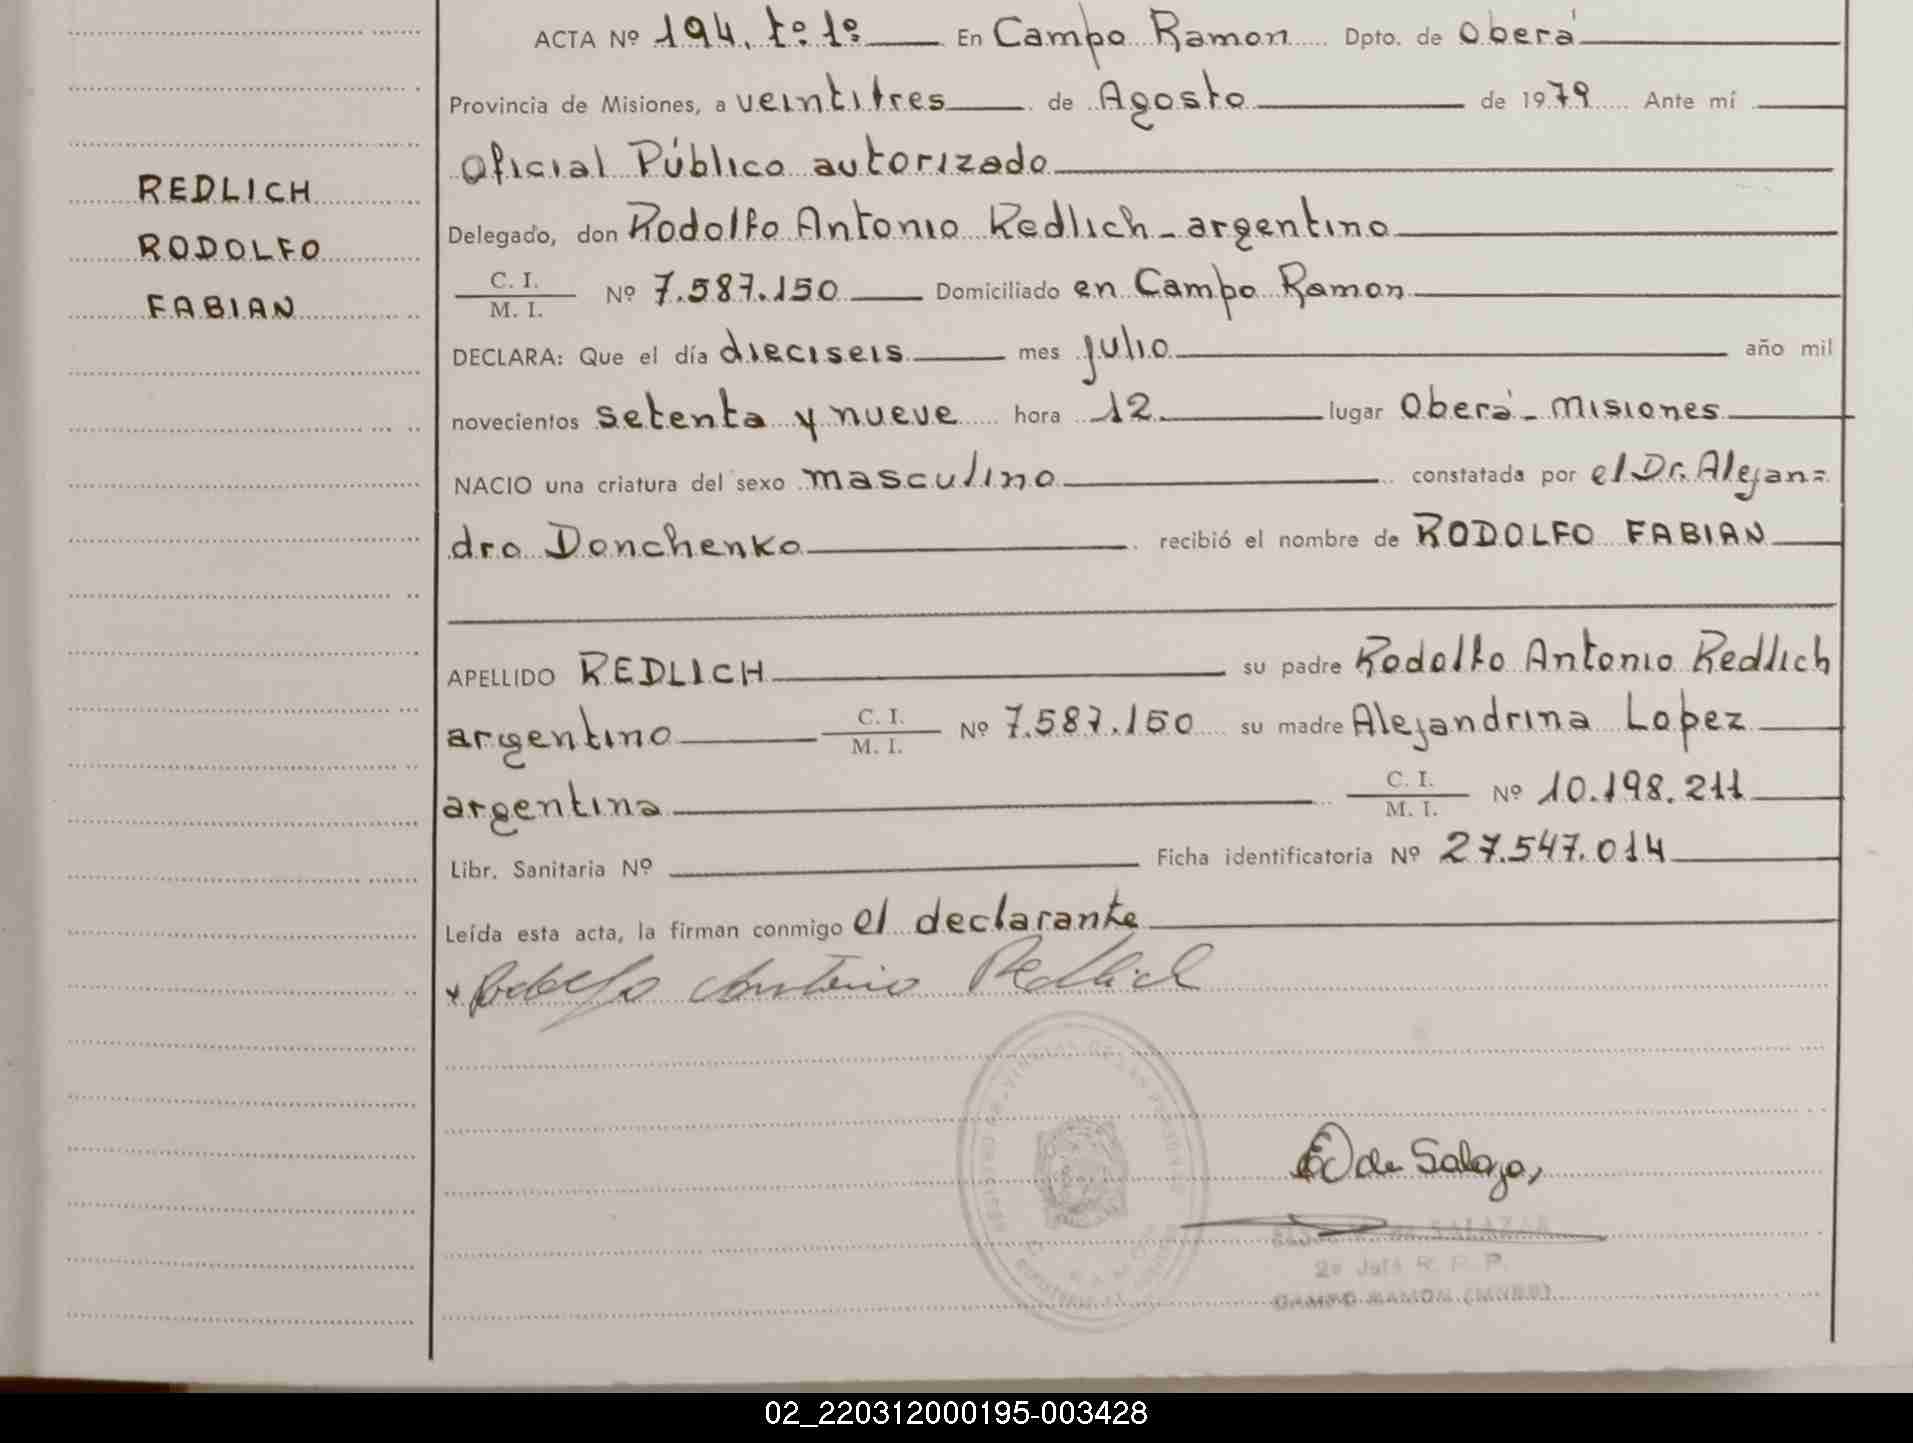 ACTA Nº 194. tº. 1º. En Campo Ramon Dpto. de Oberá
Provincia de Misiones, a veintitres de Agosto de 1979 Ante mí
Oficial Público autorizado
REDLICH
Delegado, don Rodolfo Antonio Redlich - argentino
RODOLFO
C. I.
M. I. Nº 7.587.150 Domiciliado en Campo Ramon
FABIAN
DECLARA: Que el día dieciseis mes julio año mil
novecientos setenta y nueve hora 12 lugar Oberá - Misiones
NACIO una criatura del sexo masculino constatada por el Dr. Alejan=
dro Donchenko recibió el nombre de RODOLFO FABIAN
APELLIDO REDLICH su padre Rodolfo Antonio Redlich
argentino C. I.
M. I. Nº 7.587.150 su madre Alejandrina Lopez
argentina C. I.
M. I. Nº 10.198.211
Libr. Sanitaria Nº Ficha identificatoria Nº 27.547.014
Leída esta acta, la firman conmigo el declarante
Rodolfo Antonio Redlich
de Salazar
de SALAZAR
2º Jefe R. P. P.
CAMPO RAMON (MNES)
02_220312000195-003428